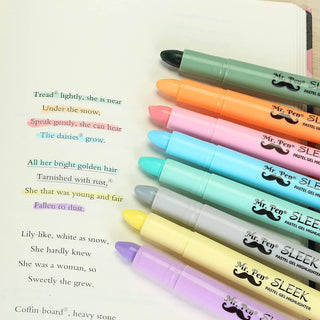 Tread° lightly, she is near
Under the snow,
Speak gently, she can hear
The daisies° grow.
All her bright golden hair
Tarnished with rust,°
She that was young and fair
Fallen to dust.
Lily-like, white as snow,
She hardly knew
She was a woman, so
Sweetly she grew.
Coffin-board°, heavy stone
Mr. Pen®
SLEEK
PASTEL GEL HIGHLIGHTER
Mr. Pen®
SLEEK
PASTEL GEL HIGHLIGHTER
Mr. Pen®
SLEEK
PASTEL GEL HIGHLIGHTER
Mr. Pen®
SLEEK
PASTEL GEL HIGHLIGHTER
Mr. Pen®
SLEEK
PASTEL GEL HIGHLIGHTER
Mr. Pen®
SLEEK
PASTEL GEL HIGHLIGHTER
Mr. Pen®
SLEEK